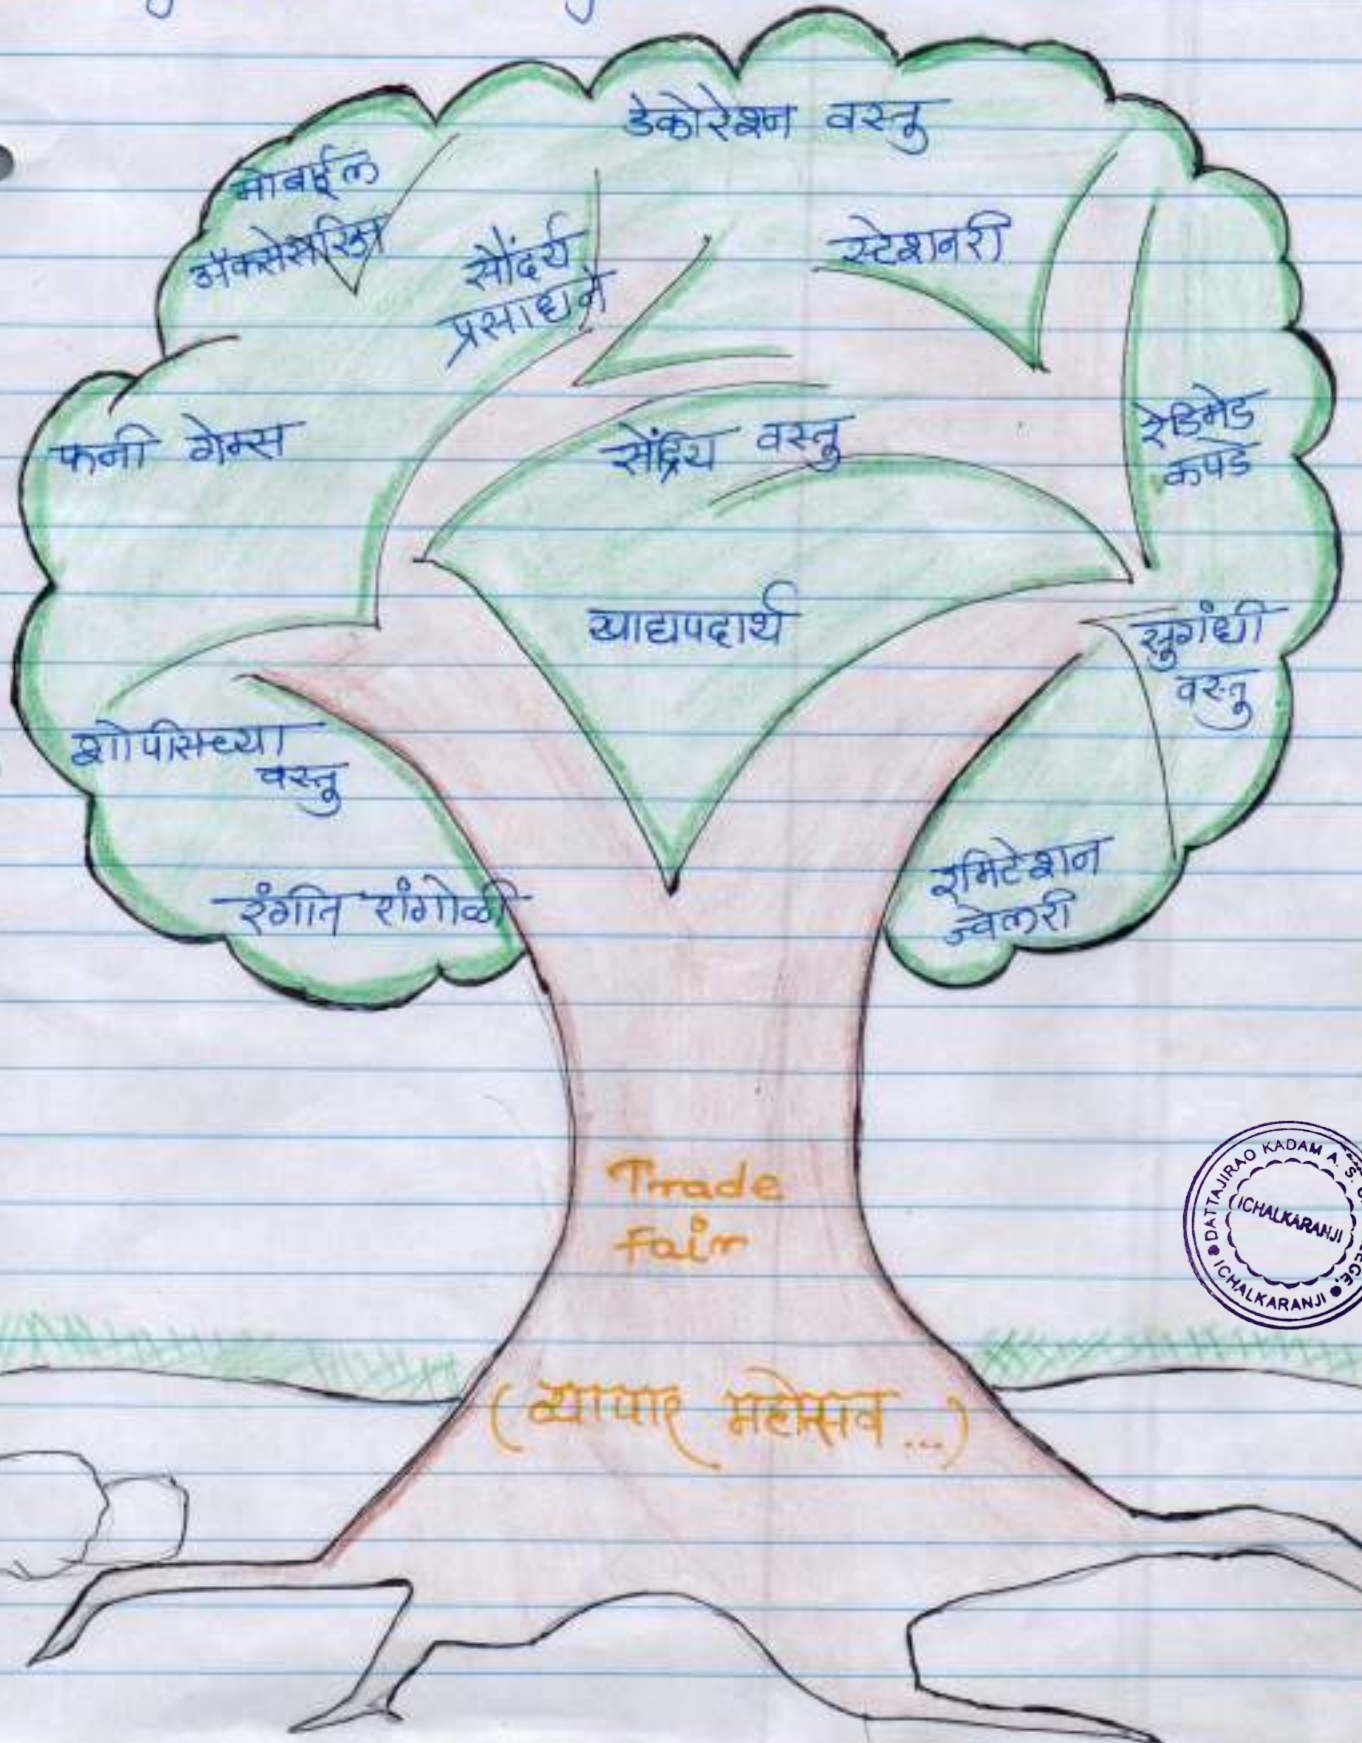 डेकोरेशन वस्तु
मोबाईल
ॲक्सेसरिज
सौंदर्य
प्रसाधने
स्टेशनरी
फनी गेम्स
सेंद्रिय वस्तु
रेडिमेड
कपडे
खाद्यपदार्थ
सुगंधी
वस्तु
शोपीसच्या
वस्तु
रंगीत रांगोळी
इमिटेशन
ज्वेलरी
Trade
Fair
(व्यापार महोत्सव ...)
DATTAJIRAO KADAM A. S.
ICHALKARANJI
ICHALKARANJI